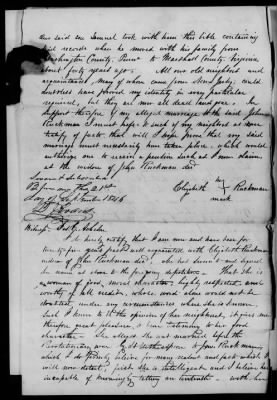 our said son Samuel took with him this bible containing
said records when he moved with his family from
Washington County, Penn to Marshall County, Virginia
about forty years ago. All our old neighbors and
acquaintances, many of whom came from New Jersey, could
have proved my identity in every particular
required, but they are now all dead long ago. In
support therefore of my alleged marriage to the said John
Ruckman I cannot hope to such of my neighbors as can
testify of facts that I hope from that my said
marriage must necessarily have taken place, which would
entitle me to receive a pension such as I now claim
as the widow of John Ruckman decd
Sworn & Subscribed
before me this 21st
day of September 1846
Elizabeth Ruckman
mark
I do hereby certify, that I am now and have been for
years past well acquainted with Elizabeth Ruckman
widow of John Ruckman decd, who has sworn to and signed
her name as above to the foregoing deposition. That she is
a woman of good moral character, highly respected and
worthy of full credit, where her oath would not be
doubted, under any circumstances where she is known.
Such I know to be the opinion of her neighbors, it gives me
therefore great pleasure, to bear testimony to her good
character. She alleges she was married before the
Revolutionary war
which I do firmly believe for many valid and facts which I
will now detail, first she is intelligent and I believe her
incapable of knowingly telling an untruth